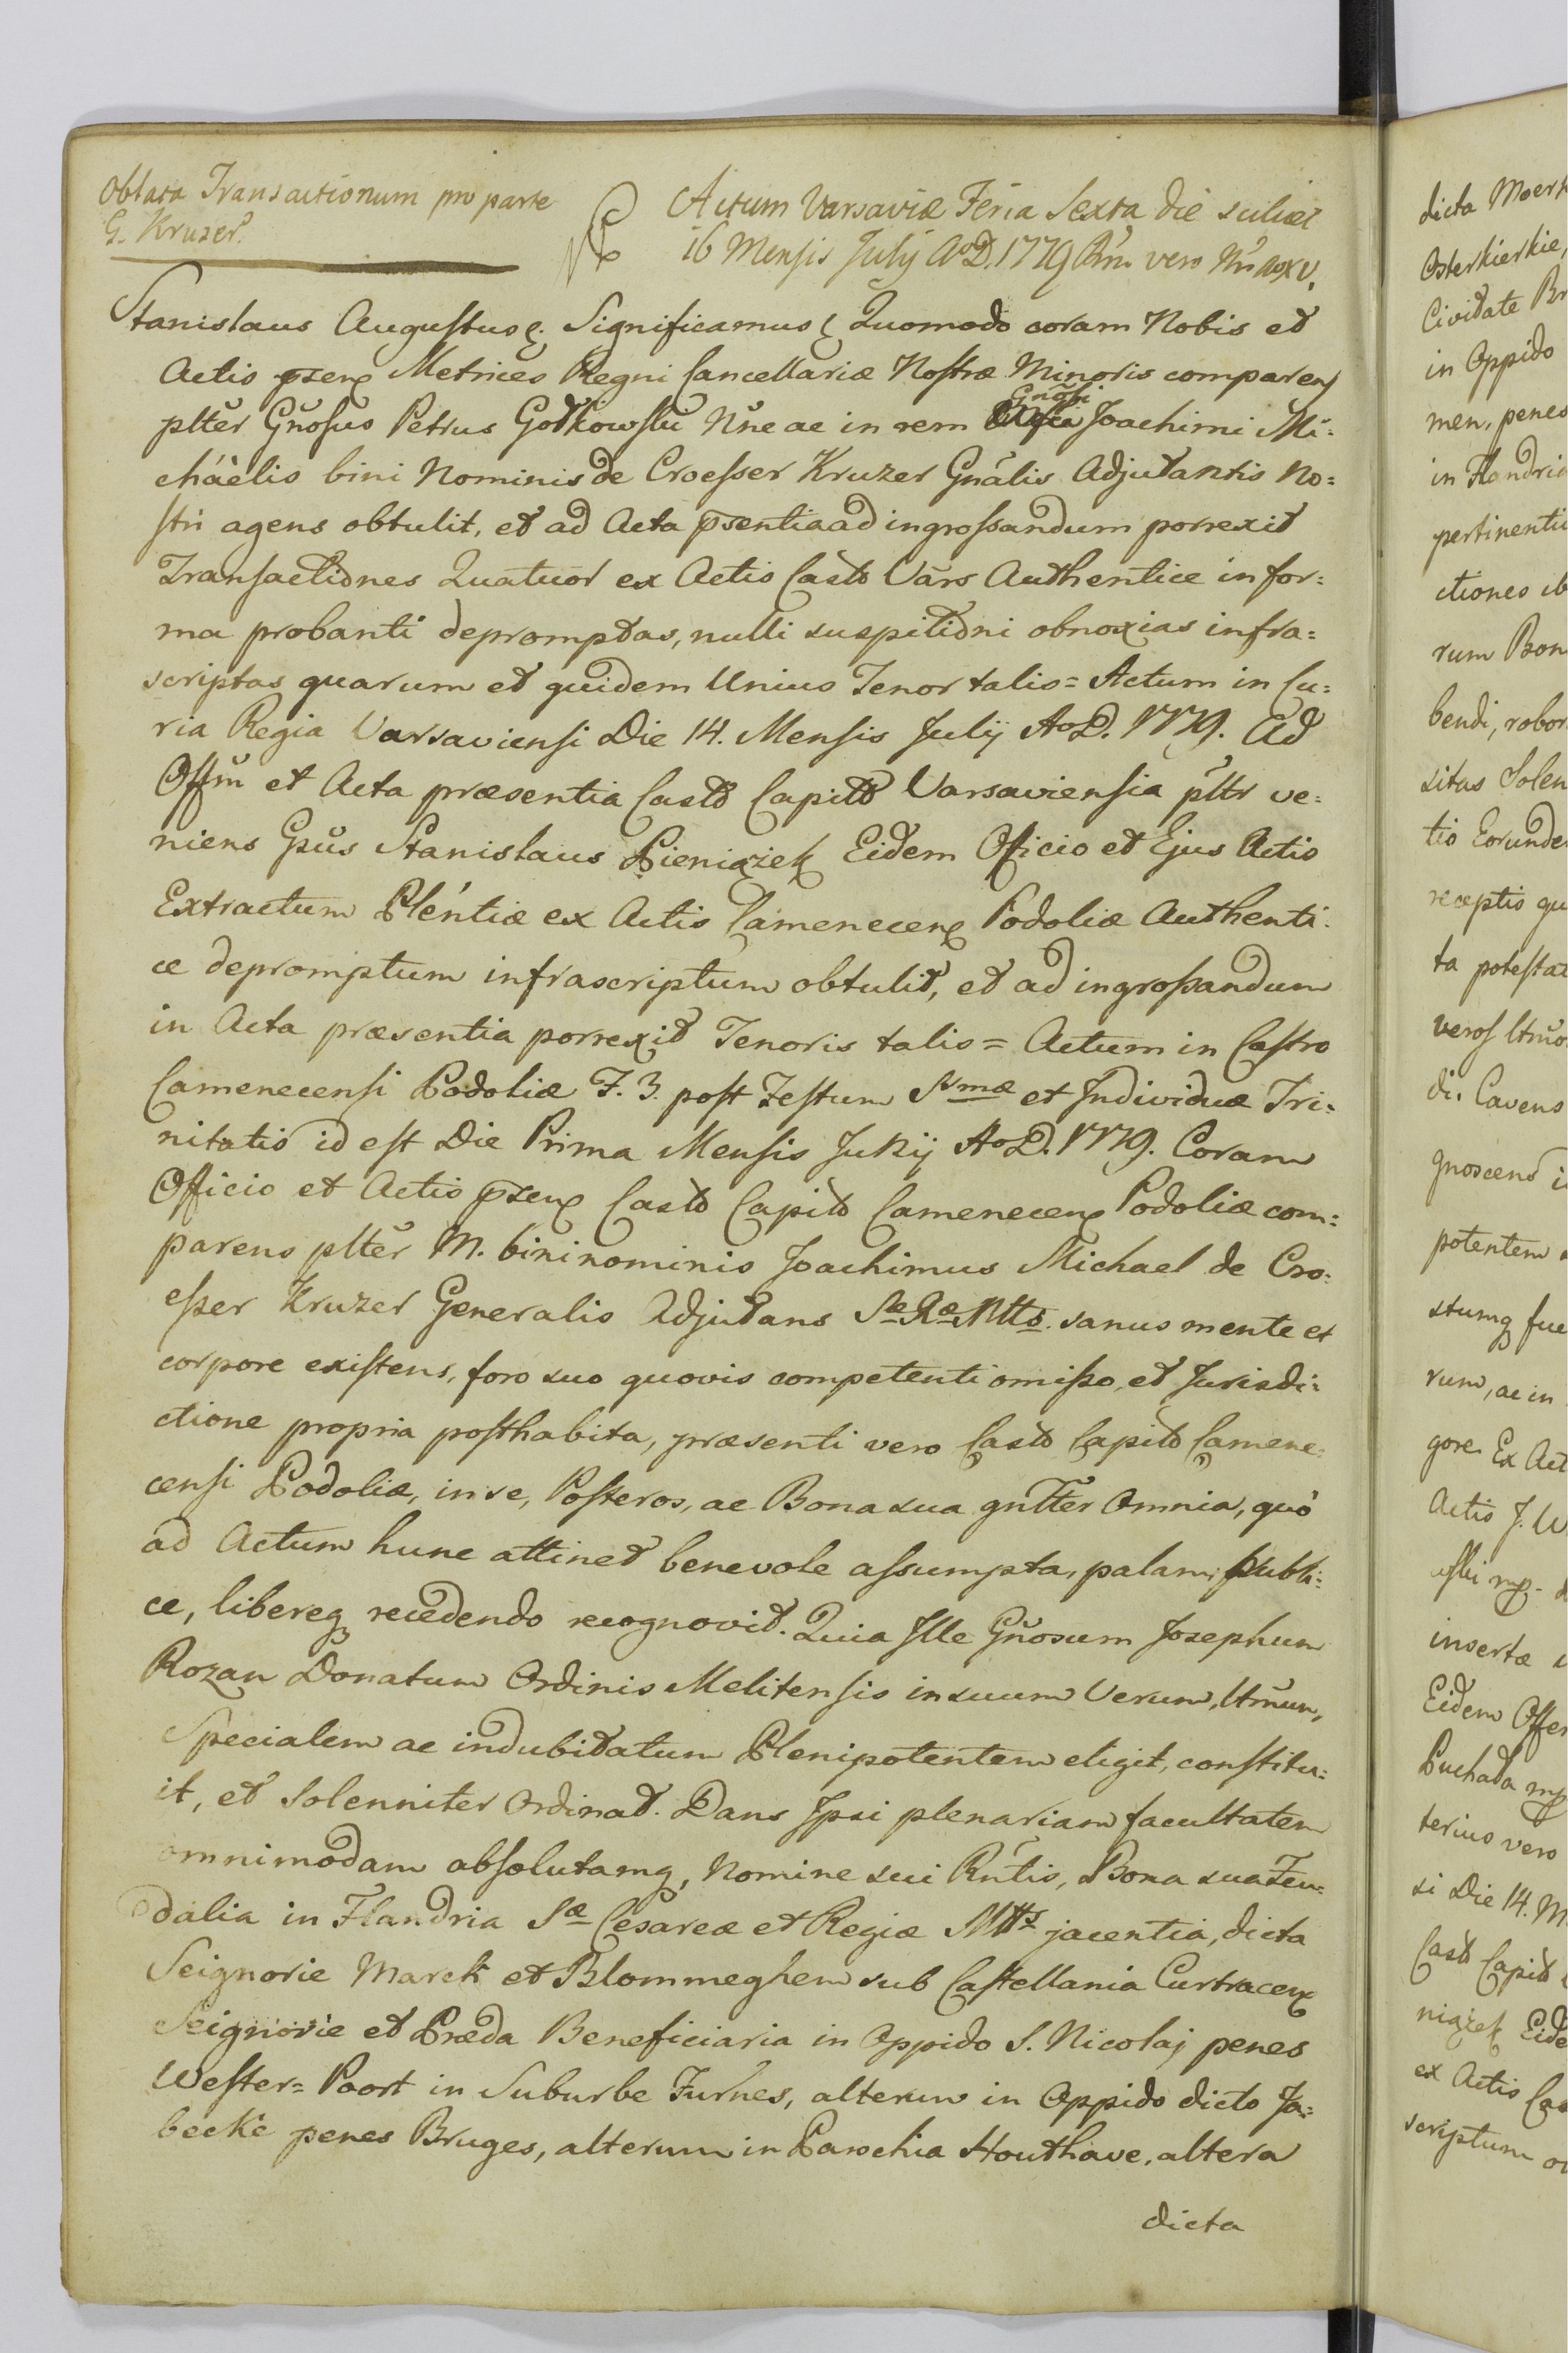 Oblata Transactionum pro parte
G. Kruzer.
Actum Varsaviæ Feria Sexta die scilicet
16 Mensis Julij AoD. 1779 Rni vero Nri
Stanislaus Augustus Significamus Quomodo coram Nobis et
Actis pzens Metrices Regni Cancellariæ Nostræ Minoris comparens
plter Gnosus Petrus Gotkowski Nne ac in rem Gnosi Joachimi Mi=
chaelis bini Nominis de Croesser Kruzer Gnalis Adjutantis No=
stri agens obtulit, et ad Acta psentia ad ingrossandum porrexit
Transactiones Quatuor ex Actis Castr Vars Authentice in for=
ma probanti depromptas, nulli suspitioni obnoxias infra=
scriptas quarum et quidem Unius Tenor talis = Actum in Cu=
ria Regia Varsaviensi Die 14. Mensis Julij AoD. 1779. Ad
Offm et Acta præsentia Castr Capit Varsaviensia pltr ve=
niens Gsus Stanislaus Pieniążek Eidem Officio et Ejus Actis
Extractum Plentiæ ex Actis Camenecens Podoliæ Authenti=
ce depromptum infrascriptum obtulit, et ad ingrossandum
in Acta præsentia porrexit Tenoris talis = Actum in Castro
Camenecensi Podoliæ F. 3. post Festum Smæ et Individuæ Tri=
nitatis id est Die Prima Mensis Junij AoD. 1779. Coram
Officio et Actis pzens Castr Capit Camenecens Podoliæ com=
parens plter M. bininominis Joachimus Michael de Cro=
esser Kruzer Generalis Adjutans Sæ Ræ Mttis. sanus mente et
corpore existens, foro suo quovis competenti omisso, et Jurisdi=
ctione propria posthabita, præsenti vero Castr Capit Camene=
censi Podoliæ, in se, Posteros, ac Bona sua gnlter Omnia, quo
ad Actum hunc attinet benevole assumpta, palam, publi=
ce, libereq recedendo recognovit. Quia Ille Gnosum Josephum
Rozan Donatum Ordinis Melitensis in suum Verum, Ltmum,
Specialem ac indubitatum Plenipotentem eligit, constitu=
it, et Solenniter Ordinat. Dans Ipsi plenariam facultatem
omnimodam absolutamq, Nomine sui Rntis, Bona sua Feu=
dalia in Flandria Sæ Cesareæ et Regiæ Mttis jacentia, dicta
Seignorie Marck et Blommeghem sub Castellania Curtracens
Seignorie et Præda Beneficiaria in Oppido S. Nicolaj penes
Wester= Poort in Suburbe Furnes, alterum in Oppido dicto Ja=
becke penes Bruges, alterum in Parochia Houthave, altera
dicta
dicta Moerk
Osterkierkie,
Cividate Br
in Oppido
men, penes
in Flandria
pertinentii
ctiones ib
rum Bon
bendi, robor
sitas Solen
tio Eorunde
receptis qu
ta potestat
veros
di. Cavens
gnoscens i
potentem
stumq fue
rum, ac in
gore. Ex Act
Actis J. W
inserta
Eidem Offer
Puchała mp
terius vero
si Die 14. M
Castr Capit
niążek Eide
ex Actis Cas
scriptum